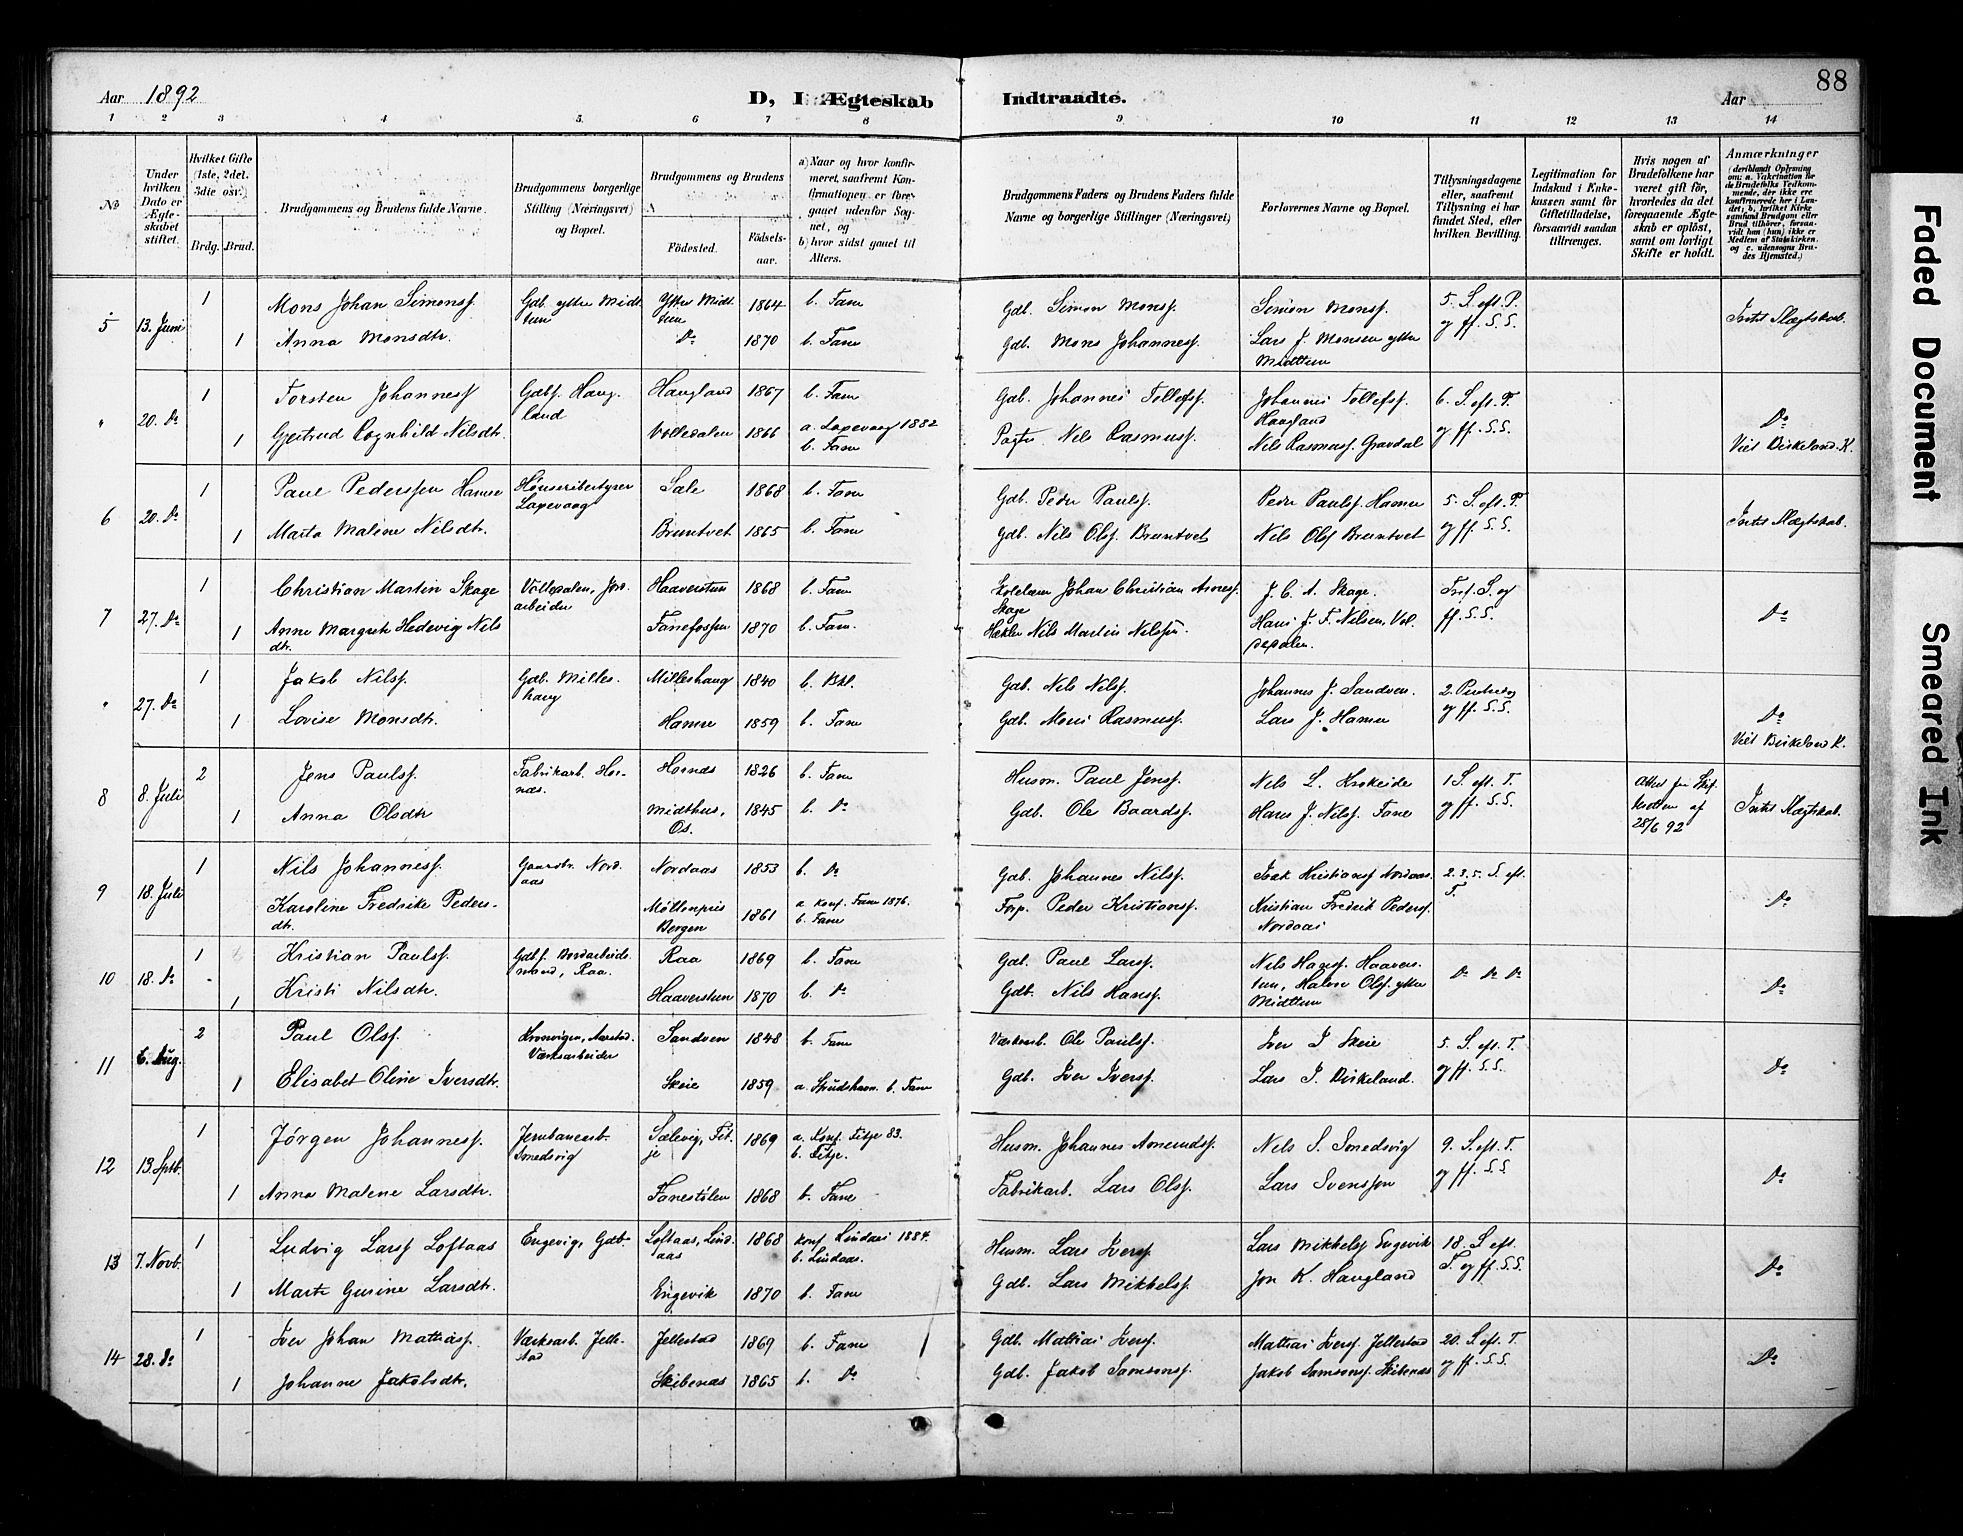 88
Aar 1892
D, I Ægteskab Indtraadte.
Aar
1 2 3 4 5. 6 7 8 9 10 11 12 13 14
№
Under hvilken Dato er Ægteskabet stiftet.
Hvilket Gifte (1ste, 2det. 3die osv.)
Brdg. Brud.
Brudgommens og Brudens fulde Navne.
Brudgommens borgerlige Stilling (Næringsvei) og Bopæl.
Brudgommens og Brudens
Födested.
Födsels-aar.
a) Naar og hvor konfirmeret, saafremt Konfirmationen er foregaaet udenfor Sognet, og
b) hvor sidst gaaet til Alters.
Brudgommens Faders og Brudens Faders fulde Navne og borgerlige Stillinger (Næringsvei)
Forlovernes Navne og Bopæl.
Tillysningsdagene eller, saafremt Tillysning ei har fundet Sted, efter hvilken Bevilling.
Legitimation for Indskud i Enkekassen samt for Giftetilladelse, forsaavidt saadan tiltrænges.
Hvis nogen af Brudefolkene har været gift för, hvorledes da det foregaaende Ægteskab er oplöst, samt om lovligt Skifte er holdt.
Anmærkninger
(deriblandt Oplysning om: a. Vakcination for de Brudefolks Vedkommende, der ikke ere konfirmerede her i Landet; b. hvilket Kirkesamfund Brudgom eller Brud tilhörer, forsaavidt han (hun) ikke er Medlem af Statskirken. og c. udensogns Brudes Hjemsted.)
5 13. Juni 1 Mons Johan Simonsf. Gdb. ytre Midttun Ytre Midttun 1864 b. Fane Gdb. Simon Monsf. Simon Monsf. 5. S. eft. P. og ff. S.S. Intet Slægtskab.
1 Anna Monsdtr. Do 1870 b. Fane Gdb. Mons Johannesf. Lars J. Monsen ytre Midttun
" 20. Do 1 Torsten Johannesf Gdbf. Haugland Haugland 1867 b. Fane Gdb. Johannes Tollefsf. Johannes Tollefsf. Haugland 6. S. eft. P. og ff. S.S. Do
1 Gjertrud Ragnhild Nilsdtr. 1866 a. Laxevaag 1882 b. Fane Nils Rasmusf. Nils Rasmusf. Gravdal Viet Birkeland. K.
6 20. Do 1 Paul Pederssen Hamre Laxevaag Sæle 1868 b. Fane Gdb. Peder Paulsf. Peder Paulsf. Hamre 5. S. eft. P og ff. S.S. Intet Slægtskab.
1 Marta Malene Nilsdtr. Bruntvet 1865 b. Fane Gdb. Nils Olsf. Bruntvet Nils Olsf Bruntvet
7 27. Do 1 Christian Martin Skage Haaverstun 1868 b. Fane Johan Christian Skage J. C. A. Skage. Tref. S. og ff. S.S. Do
1 Anne Margrete Hedevig Nilsdtr. Fanefossen 1870 b. Fane. Nils Martin Nilssen. Hans J. F. Nilsen,
" 27. Do 1 Jakob Nilsf. Gdb. Milleshaug Milleshaug 1840 b. Bkl. Gdb. Nils Nilsf. Johannes J. Sandven. 2. Pintsedag og ff. S.S. Do
1 Lovise Monsdtr. Hamre 1859 b. Fane Gdb. Mons Rasmusf. Lars J. Hamre Viet Birkeland K.
8 8. Juli 2 Jens Paulsf. Fabrikarb. Hornæs. Hornæs 1826 b. Fane Husm. Paul Jensf. Nils L. Krokeide 1 S. eft. T. og ff. S.S. Attest fra Skifteretten af 28/6 92 Intet Slægtskab.
1 Anna Olsdtr Midthus, Os. 1845 b. Do Gdb. Ole Baardsf. Hans J. Nilsf. Fane
9 18. Juli 1 Nils Johannesf. Gaardbr. Nordaas Nordaas 1853 b. Do Gdb. Johannes Nilsf. Isak Kristiansf Nordaas. 2. 3. 5. S. eft. T. Do
1 Karoline Fredrike Pedersdtr. Møllenpris Bergen 1861 a konf. Fane 1876. b. Fane Forp. Peder Kristiansf. Kristian Frederik Pedersf. Nordaas
10 18. Do 1 Kristian Paulsf. Gdbf. Bordarbeidsmand, Raa. Raa 1869 b. Fane Gdb. Paul Larsf. Nils Hansf. Haaverstun, Halvor Olsf. ytre Midttun Do Do Do Do
1 Kristi Nilsdtr. Haaverstun 1870 b. Do Gdb. Nils Hansf.
11 6. Aug. 2 Paul Olsf. Kronvigen, Aarstad. Værksarbeider Sandven 1848 b. Fane Værksarb. Ole Paulsf. Iver I Skeie 5. S. eft. T. og ff. S.S. Do
1 Elisabet Oline Iversdtr. Skeie 1859 b. Fane Gdb. Iver Iversf. Lars J. Birkeland.
12 13. Sptb. 1 Jørgen Johannesf. Jernbanearb. Smedsvig Sælevig, Fitje 1869 a. Konf. Fitje 83. b. Fitje. Husm. Johannes Amundsf. Nils S. Smedsvig 9. S. eft. T. og ff. S.S. Do
1 Anna Malene Larsdtr. Fanestølen 1868 b. Fane Fabrikarb. Lars Olsf. Lars Svenssen
13 7. Novb. 1 Ludvig Larsf Loftaas Engevig, Gdb. Loftaas, Lindaas 1868 konf Lindaas 1884. b. Lindaas. Husm. Lars Iversf. Lars Mikkelsf Engevik 18. S. eft. T. og ff. S.S. Do
1 Marte Gurine Larsdtr. Engevik 1870 b. Fane Gdb. Lars Mikkelsf. Jon K. Haugland
14 28. Do 1 Iver Johan Mathiasf. Værksarb. Jellestad Jellestad 1869 b. Fane Gdb. Mathias Iversf. Mathias Iversf. Jellestad 20. S. eft. T. og ff. S.S. Do
1 Johanne Jakobsdtr. Skibenæs 1865 b. Do Gdb. Jakob Samsonsf. Jakob Samsonsf. Skibenæs
Faded Document
Smeared Ink